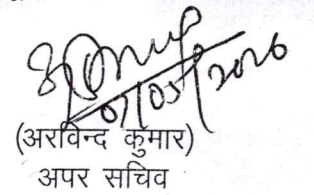 07/05/2026
(अरविन्द कुमार)
अपर सचिव